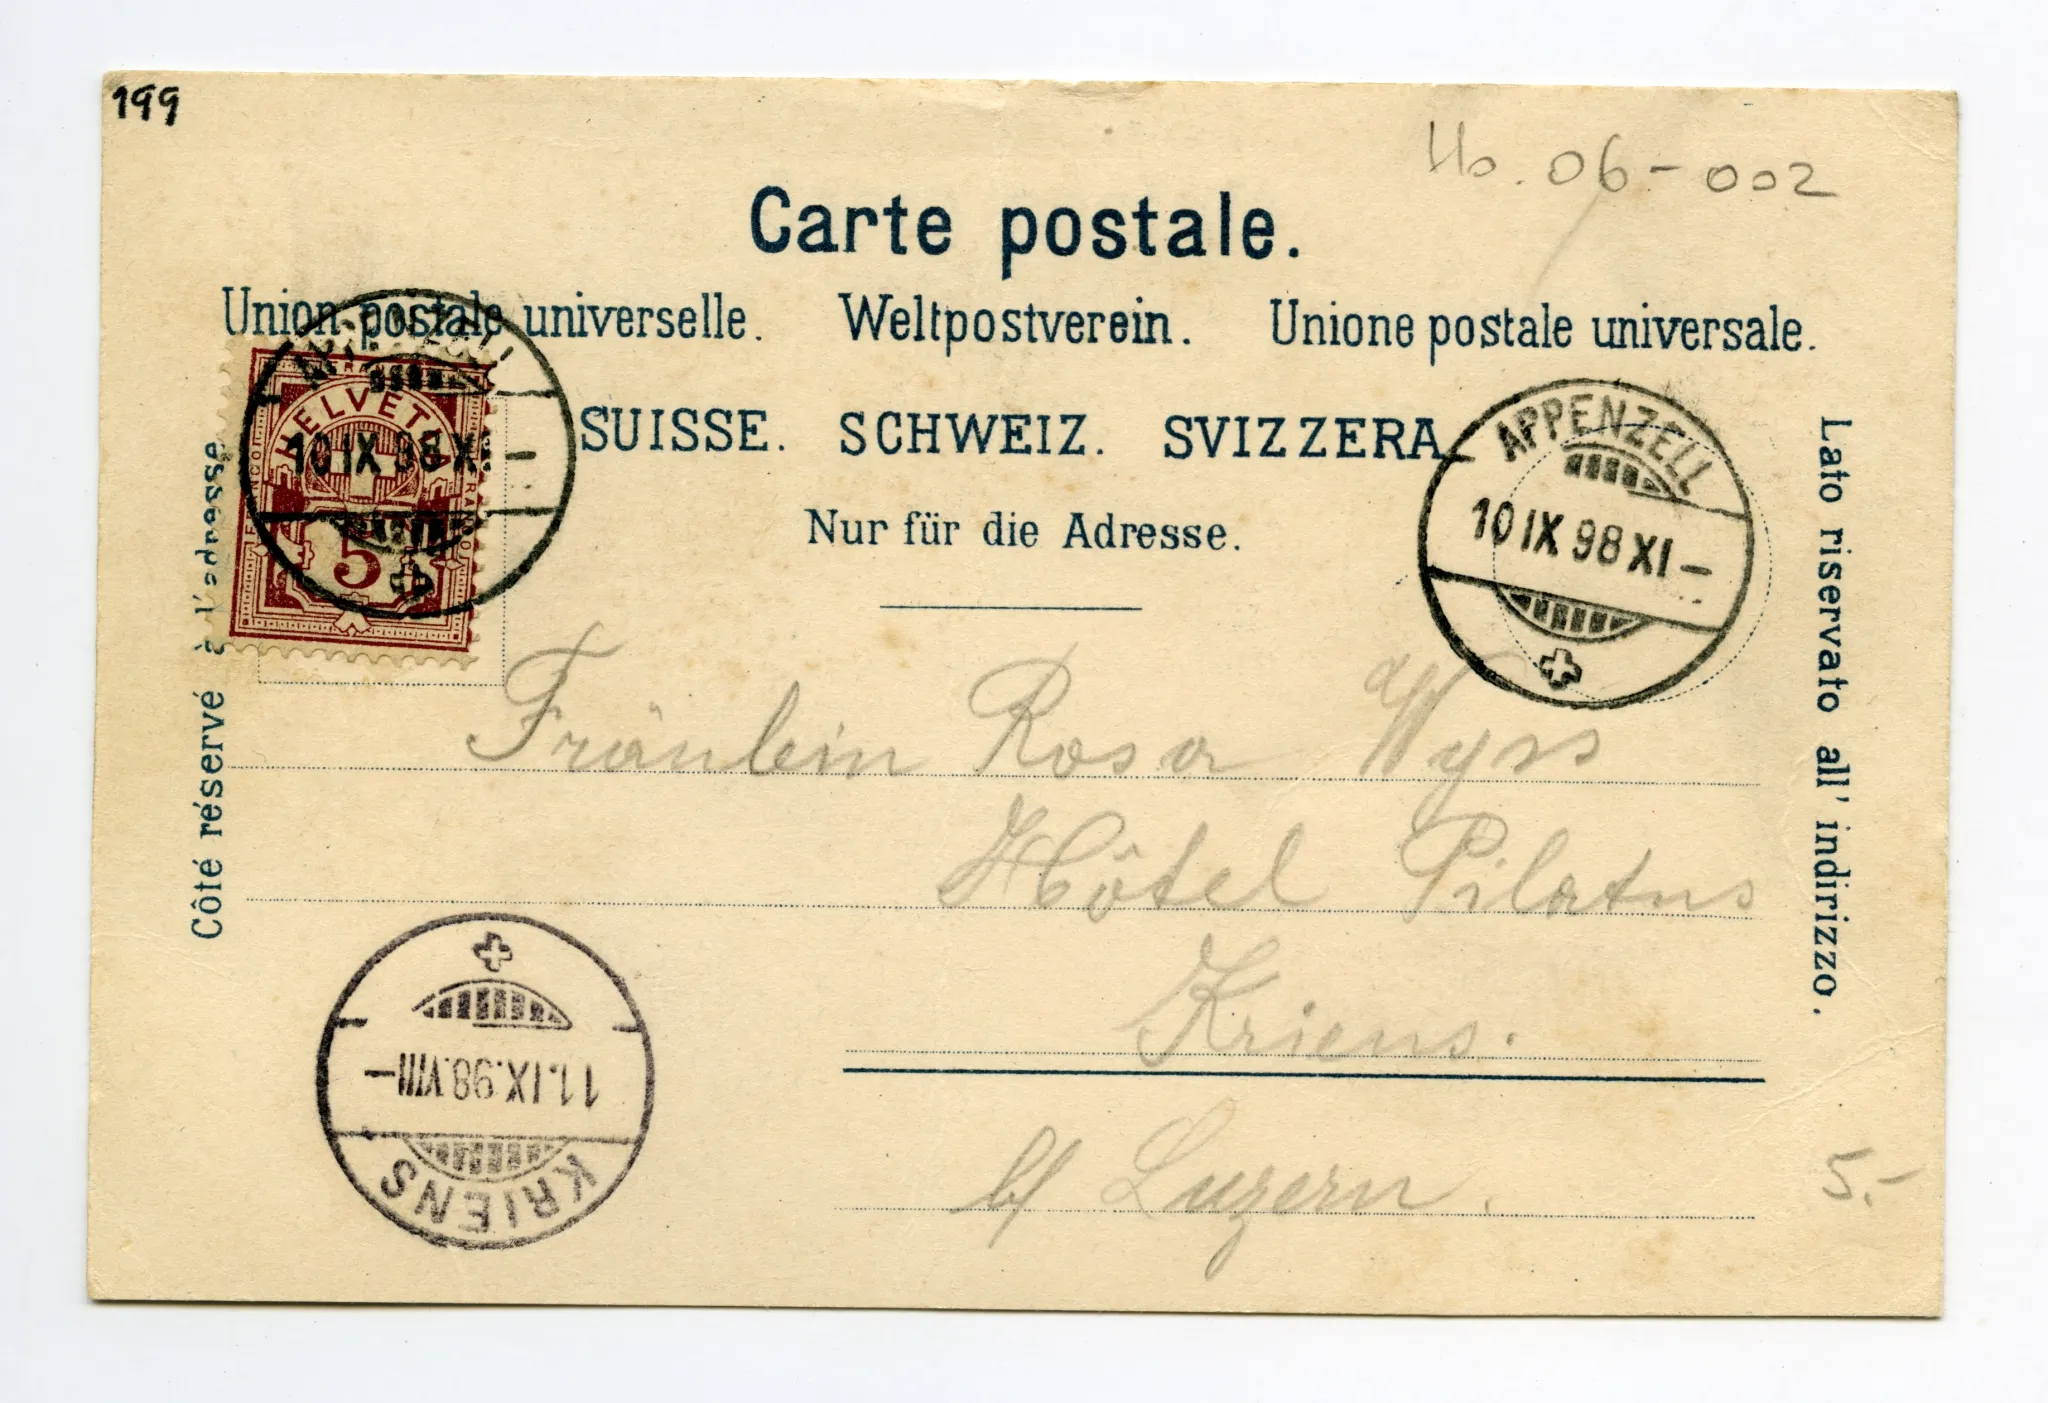 199
Ho. 06-002
Carte postale.
Union postale universelle. Weltpostverein. Unione postale universale.
SUISSE. SCHWEIZ. SVIZZERA.
Nur für die Adresse.
Côté réservé à l'adresse
Lato riservato all' indirizzo.
HELVETIA
5
10 IX 98 XI –
APPENZELL
10 IX 98 XI –
Fräulein Rosa Wyss
Hôtel Pilatus
Kriens.
b/ Luzern.
5.-
11.IX.98.VIII–
KRIENS